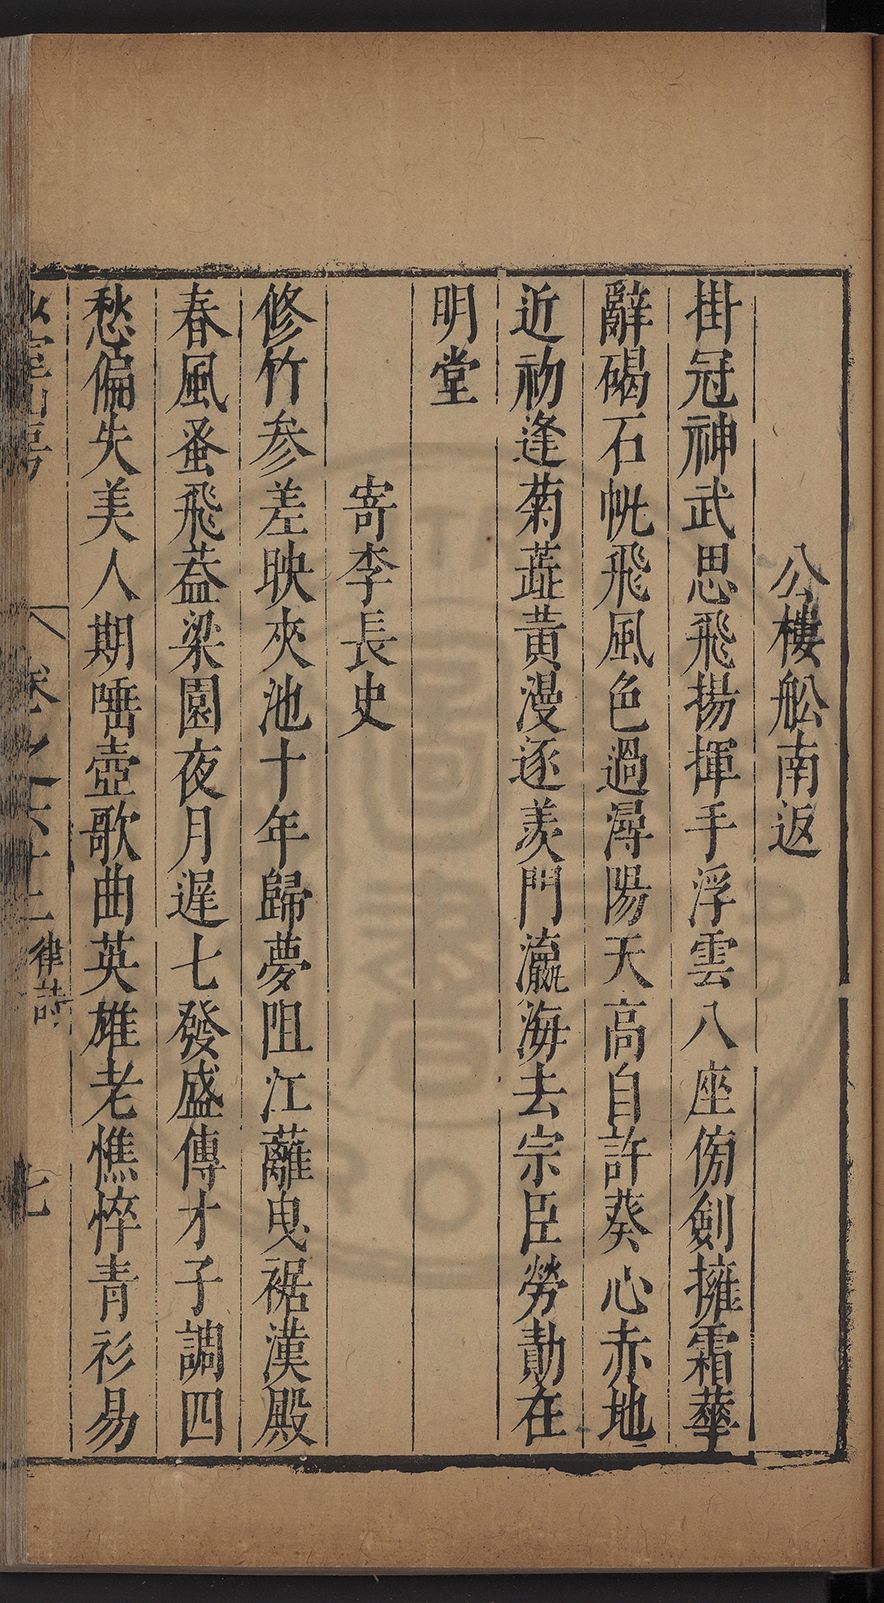 公樓舩南返
掛冠神武思飛揚揮手浮雲八座傍劍擁霜華
辭碣石帆飛風色過潯陽天高自許葵心赤地
近初逢菊蕋黃漫逐羨門瀛海去宗臣勞勣在
明堂
寄李長史
修竹参差映夾池十年歸夢阻江蘺曳裾漢殿
春風蚤飛葢梁園夜月遲七發盛傳才子調四
愁偏失美人期唾壺歌曲英雄老憔悴青衫易
卷之 律詩 七